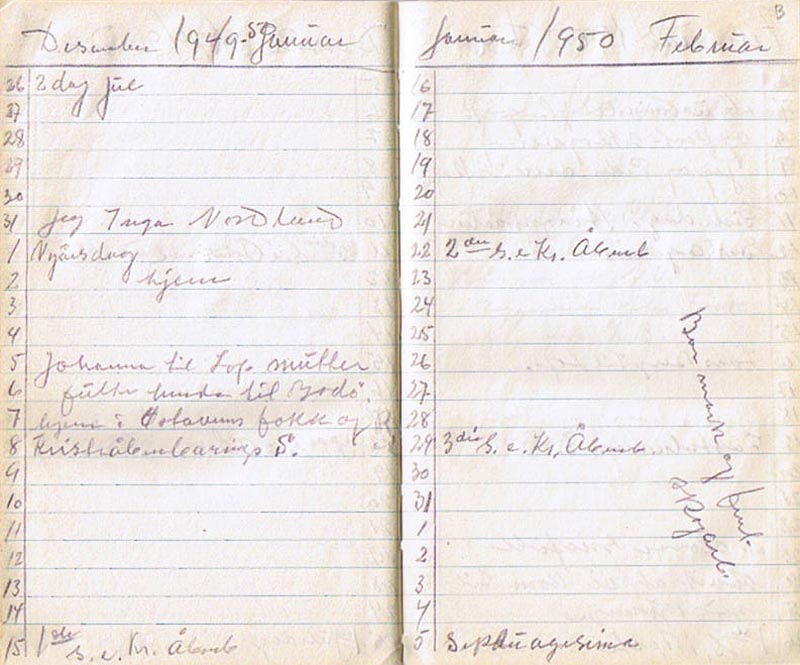 Desember 1949-50 Januar
26 2 dag jul
27
28
29
30
31 Jeg Inga Nordlund
1 Nyårsdag
2 hjem
3
4
5 Johanna til
6 til Bodö.
7 hjem i fokk og
8 S.
9
10
11
12
13
14
15 1ste S. e. Kr. Åbenb
Januar 1950 Februar
B
16
17
18
19
20
21
22 2den S. e Kr. Åbenb
23
24
25
26
27
28
29 3die S. e. Kr. Åbenb.
30
31
1
2
3
4
5 Septuagesima
og